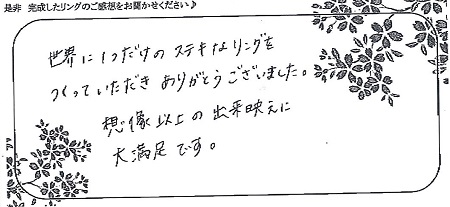 是非 完成したリングのご感想をお聞かせください♪
世界に1つだけの ステキなリングを
つくっていただき ありがとうございました。
想像以上の出来映えに
大満足です。